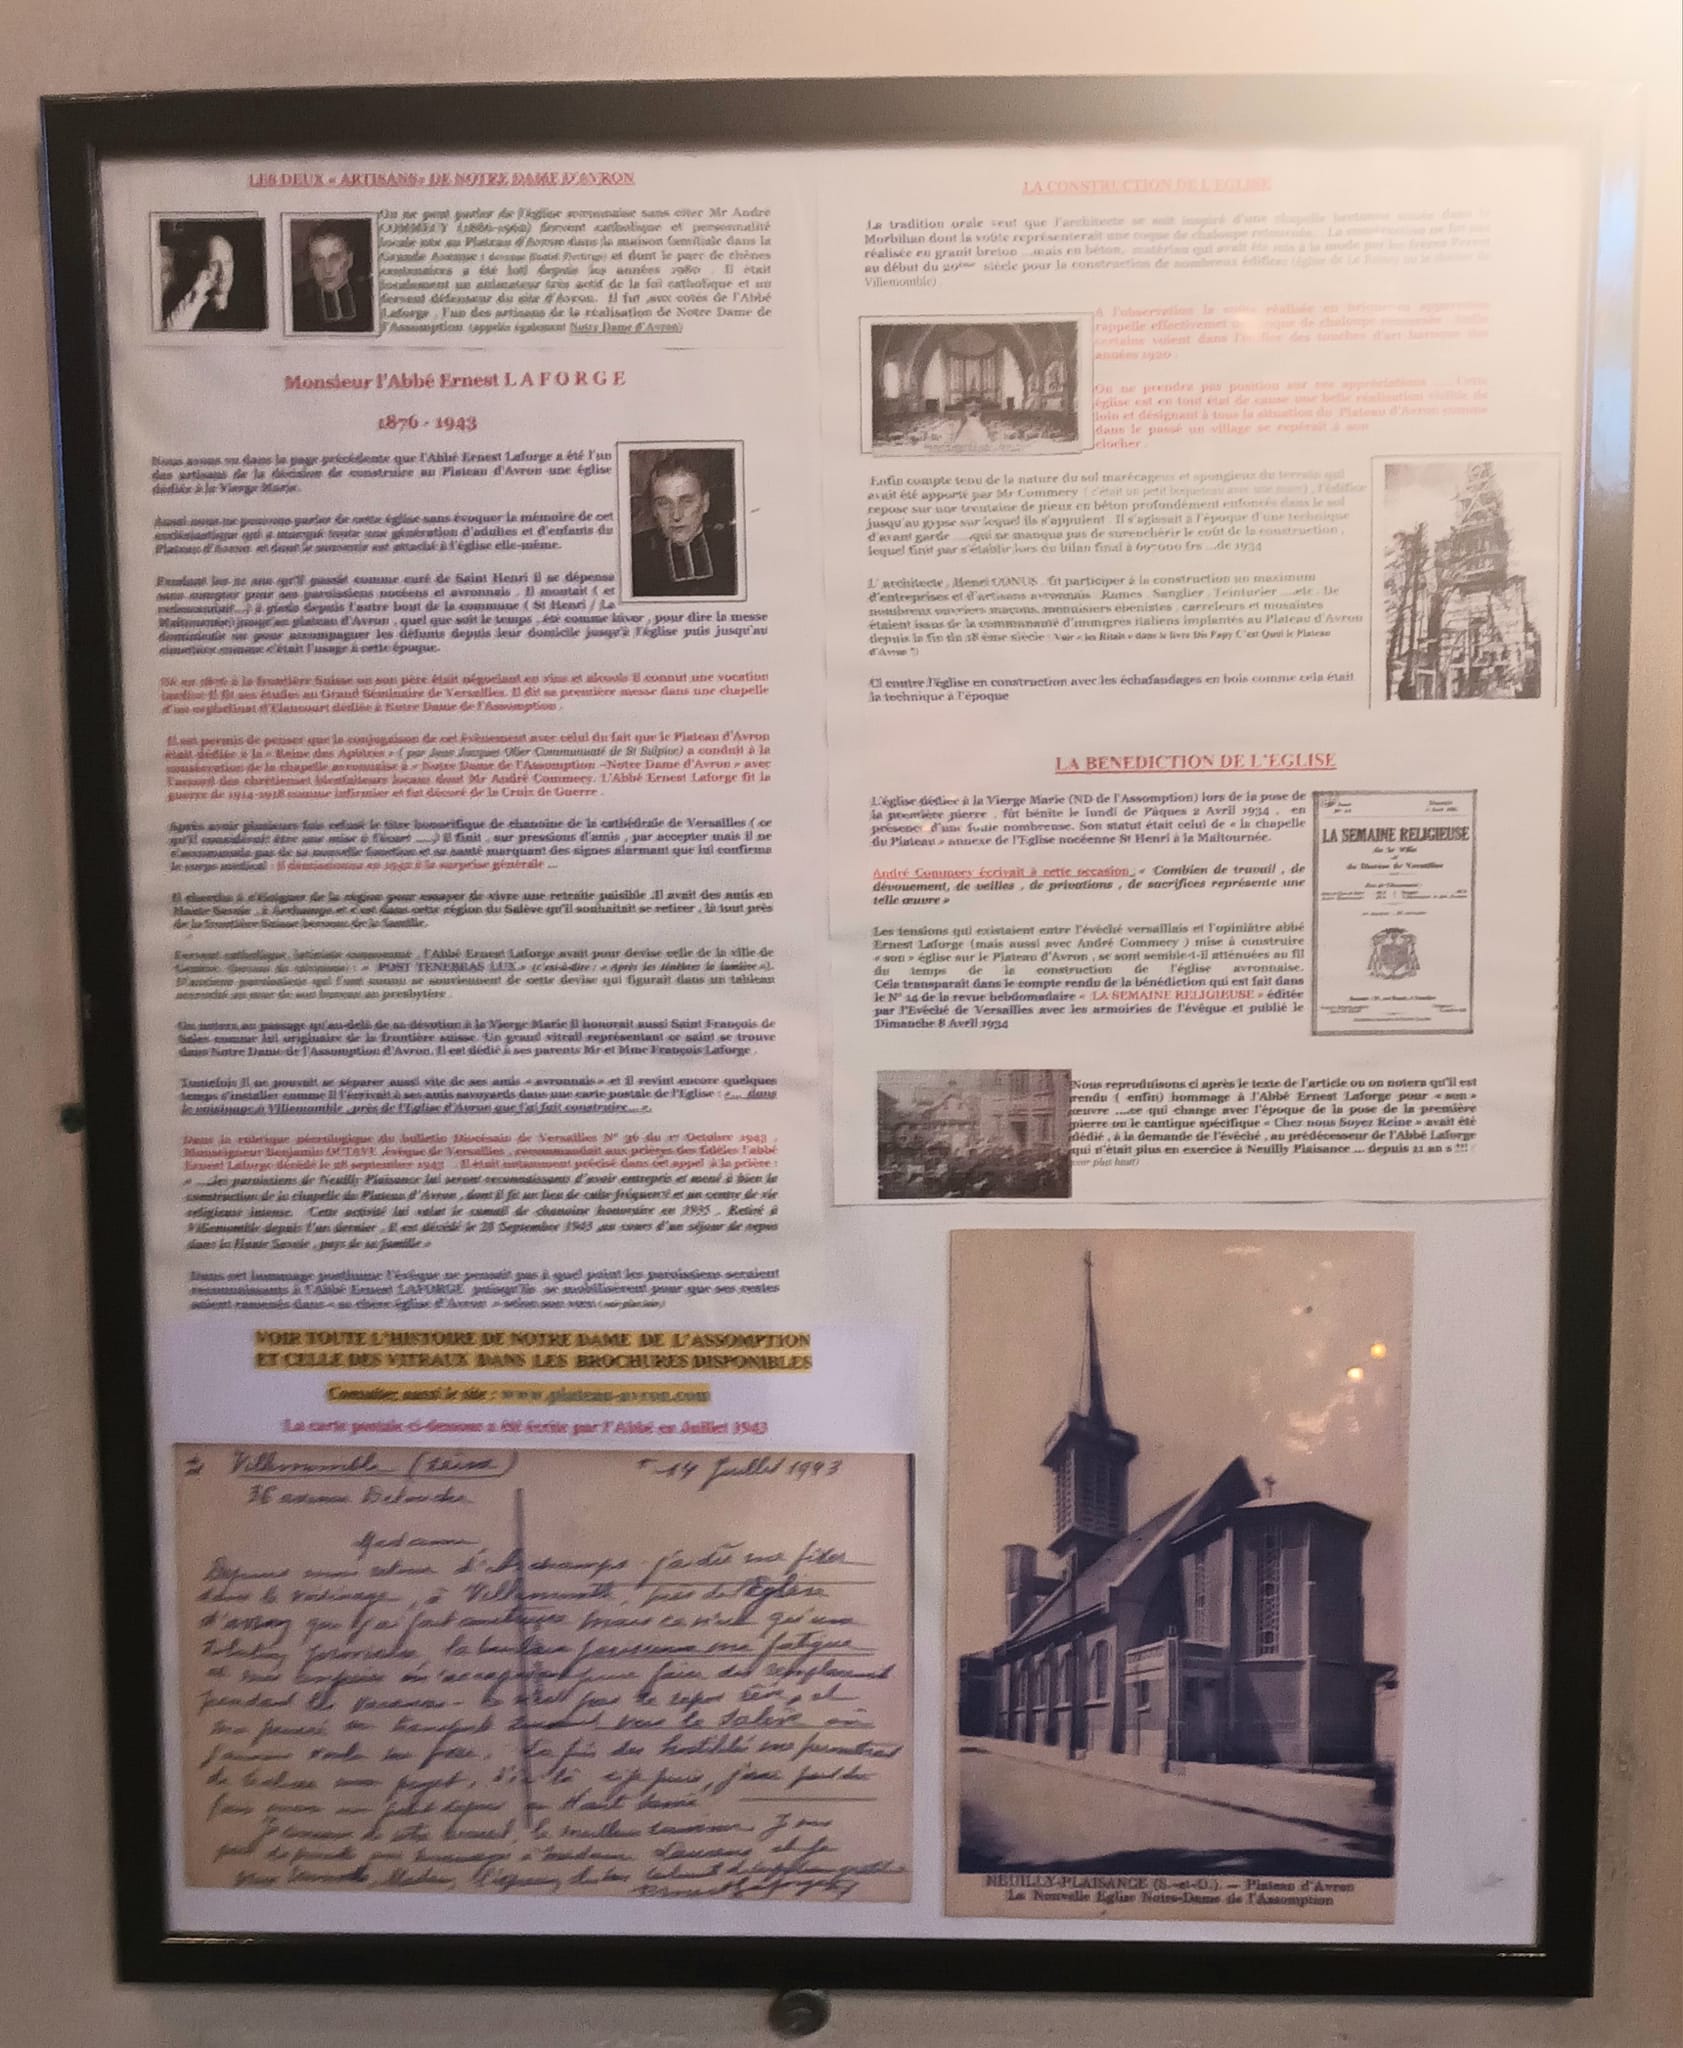 LES DEUX « ARTISANS» DE NOTRE DAME D'AVRON
On ne peut parler de l'église avronnaise sans citer Mr André
COMMECY fervent catholique et personnalité
locale né au Plateau d'Avron dans la maison familiale dans la
Grande Avenue et dont le parc de chênes
centenaires a été loti depuis les années 1980 . Il était
localement un animateur très actif de la foi catholique et un
fervent défenseur du site d'Avron. Il fut ,aux cotés de l'Abbé
Laforge , l'un des artisans de la réalisation de Notre Dame de
l'Assomption (appelée également Notre Dame d'Avron)
Monsieur l'Abbé Ernest L A F O R G E
1876 - 1943
Nous avons vu dans la page précédente que l'Abbé Ernest Laforge a été l'un
des artisans de la décision de construire au Plateau d'Avron une église
dédiée à la Vierge Marie.
Aussi nous ne pouvons parler de cette église sans évoquer la mémoire de cet
ecclésiastique qui a marqué toute une génération d'adultes et d'enfants du
Plateau d'Avron et dont le souvenir est attaché à l'église elle-même.
Pendant les ans qu'il passât comme curé de Saint Henri il se dépensa
sans compter pour ses paroissiens nocéens et avronnais . Il montait ( et
à pieds depuis l'autre bout de la commune ( St Henri / La
Maltournée) jusqu'au plateau d'Avron , quel que soit le temps , été comme hiver , pour dire la messe
dominicale ou pour accompagner les défunts depuis leur domicile jusqu'à l'église puis jusqu'au
cimetière comme c'était l'usage à cette époque.
Né en 1876 à la frontière Suisse ou son père était négociant en vins et alcools il connut une vocation
tardive. Il fit ses études au Grand Séminaire de Versailles. Il dit sa première messe dans une chapelle
d'un orphelinat d'Elancourt dédiée à Notre Dame de l'Assomption .
Il est permis de penser que la conjugaison de cet évènement avec celui du fait que le Plateau d'Avron
était dédiée à la « Reine des Apôtres » ( par Jean Jacques Olier Communauté de St Sulpice) a conduit à la
consécration de la chapelle avronnaise à « Notre Dame de l'Assomption –Notre Dame d'Avron » avec
l'accord des chrétiens et bienfaiteurs locaux dont Mr André Commecy. L'Abbé Ernest Laforge fit la
guerre de 1914-1918 comme infirmier et fut décoré de la Croix de Guerre .
Après avoir plusieurs fois refusé le titre honorifique de chanoine de la cathédrale de Versailles ( ce
qu'il considérait être une mise à l'écart ....) il finit , sur pressions d'amis , par accepter mais il ne
s'accommoda pas de sa nouvelle fonction et sa santé marquant des signes alarmant que lui confirma
le corps médical : il démissionna en 1942 à la surprise générale ...
Il chercha à s'éloigner de la région pour essayer de vivre une retraite paisible .Il avait des amis en
Haute Savoie , à Archamps et c'est dans cette région du Salève qu'il souhaitait se retirer , là tout près
de la frontière Suisse berceau de la famille.
Fervent catholique, latiniste , l'Abbé Ernest Laforge avait pour devise celle de la ville de
Genève : « POST TENEBRAS LUX » (c'est-à-dire : « Après les ténèbres la lumière »).
D'anciens paroissiens qui l'ont connu se souviennent de cette devise qui figurait dans un tableau
accroché au mur de son bureau au presbytère .
On notera au passage qu'au-delà de sa dévotion à la Vierge Marie il honorait aussi Saint François de
Sales comme lui originaire de la frontière suisse. Un grand vitrail représentant ce saint se trouve
dans Notre Dame de l'Assomption d'Avron. Il est dédié à ses parents Mr et Mme François Laforge .
Toutefois il ne pouvait se séparer aussi vite de ses amis « avronnais » et il revint encore quelques
temps s'installer comme il l'écrivait à ses amis savoyards dans une carte postale de l'Eglise : «... dans
le voisinage à Villemomble , près de l'Eglise d'Avron que j'ai fait construire... ».
Dans la rubrique nécrologique du bulletin Diocésain de Versailles N° 36 du 1er Octobre 1943 ,
Monseigneur Benjamin OCTAVE ,évêque de Versailles , recommandait aux prières des fidèles l'abbé
Ernest Laforge décédé le 28 septembre 1943 . Il était notamment précisé dans cet appel à la prière :
« ...les paroissiens de Neuilly Plaisance lui seront reconnaissants d'avoir entrepris et mené à bien la
construction de la chapelle du Plateau d'Avron , dont il fit un lieu de culte fréquenté et un centre de vie
religieuse intense. Cette activité lui valut le camail de chanoine honoraire en 1935 . Retiré à
Villemomble depuis l'an dernier , il est décédé le 28 Septembre 1943 au cours d'un séjour de repos
dans la Haute Savoie , pays de sa famille »
Dans cet hommage posthume l'évêque ne pensait pas à quel point les paroissiens seraient
reconnaissants à l'Abbé Ernest LAFORGE puisqu'ils se mobilisèrent pour que ses restes
soient ramenés dans « sa chère église d'Avron » selon son vœu (voir plus loin)
VOIR TOUTE L'HISTOIRE DE NOTRE DAME DE L'ASSOMPTION
ET CELLE DES VITRAUX DANS LES BROCHURES DISPONIBLES
Consultez aussi le site : www.plateau-avron.com
La carte postale ci-dessous a été écrite par l'Abbé en Juillet 1943
Villemomble (Seine) 14 Juillet 1943
36 avenue Detouche
Madame,
Depuis mon retour d'Archamps j'ai dû me fixer
dans le voisinage, à Villemomble, près de l'Eglise
d'Avron que j'ai fait construire mais ce n'est qu'une
solution provisoire, la banlieue parisienne me fatigue
pendant les vacances - ce n'est pas le repos rêvé, et
ma pensée se transporte souvent vers le Salève où
La fin des hostilités me permettrait
de réaliser mon projet, d'ici là
Haute Savoie
LA CONSTRUCTION DE L'EGLISE
La tradition orale veut que l'architecte se soit inspiré d'une chapelle bretonne située dans le
Morbihan dont la voûte représenterait une coque de chaloupe retournée . La construction ne fut pas
réalisée en granit breton ...mais en béton, matériau qui avait été mis à la mode par les frères Perret
au début du 20ème siècle pour la construction de nombreux édifices (église de Le Raincy ou le théâtre de
Villemomble)
A l'observation la voûte réalisée en briques en apparence
rappelle effectivemet coque de chaloupe
certains voient dans l'édifice des touches d'art baroque des
années 1920 .
On ne prendra pas position sur ces appréciations ......Cette
église est en tout état de cause une belle réalisation visible de
loin et désignant à tous la situation du Plateau d'Avron comme
dans le passé un village se repérait à son
clocher .
Enfin compte tenu de la nature du sol marécageux et spongieux du terrain qui
avait été apporté par Mr Commecy ( c'était un petit boqueteau avec une mare) , l'édifice
repose sur une trentaine de pieux en béton profondément enfoncés dans le sol
jusqu'au gypse sur lequel ils s'appuient . Il s'agissait à l'époque d'une technique
d'avant garde .....qui ne manqua pas de surenchérir le coût de la construction ,
lequel finit par s'établir lors du bilan final à 697000 frs ...de 1934
L' architecte , Henri CONUS , fit participer à la construction un maximum
d'entreprises et d'artisans avronnais . Rames , Sanglier , Teinturier ....etc . De
nombreux ouvriers maçons, menuisiers ébénistes , carreleurs et mosaïstes
étaient issus de la communauté d'immigrés italiens implantés au Plateau d'Avron
depuis la fin du 18 ème siècle ( Voir « les Ritals » dans le livre Dis Papy C'est Quoi le Plateau
d'Avron ?)
Ci contre l'église en construction avec les échafaudages en bois comme cela était
la technique à l'époque
LA BENEDICTION DE L'EGLISE
L'église dédiée à la Vierge Marie (ND de l'Assomption) lors de la pose de
la première pierre , fût bénite le lundi de Pâques 2 Avril 1934 , en
présence d'une foule nombreuse. Son statut était celui de « la chapelle
du Plateau » annexe de l'Eglise nocéenne St Henri à la Maltournée.
André Commecy écrivait à cette occasion : « Combien de travail , de
dévouement, de veilles , de privations , de sacrifices représente une
telle œuvre »
Les tensions qui existaient entre l'évêché versaillais et l'opiniâtre abbé
Ernest Laforge (mais aussi avec André Commecy ) mise à construire
« son » église sur le Plateau d'Avron , se sont semble-t-il atténuées au fil
du temps de la construction de l'église avronnaise.
Cela transparaît dans le compte rendu de la bénédiction qui est fait dans
le N° 14 de la revue hebdomadaire « LA SEMAINE RELIGIEUSE » éditée
par l'Evêché de Versailles avec les armoiries de l'évêque et publié le
Dimanche 8 Avril 1934
LA SEMAINE RELIGIEUSE
de la Ville
et du Diocèse de Versailles
Nous reproduisons ci après le texte de l'article ou on notera qu'il est
rendu ( enfin) hommage à l'Abbé Ernest Laforge pour « son »
œuvre ....ce qui change avec l'époque de la pose de la première
pierre ou le cantique spécifique « Chez nous Soyez Reine » avait été
dédié , à la demande de l'évêché , au prédécesseur de l'Abbé Laforge
qui n'était plus en exercice à Neuilly Plaisance ... depuis 21 an s !!!
(voir plus haut)
NEUILLY-PLAISANCE (S.-et-O.). — Plateau d'Avron
La Nouvelle Eglise Notre-Dame de l'Assomption